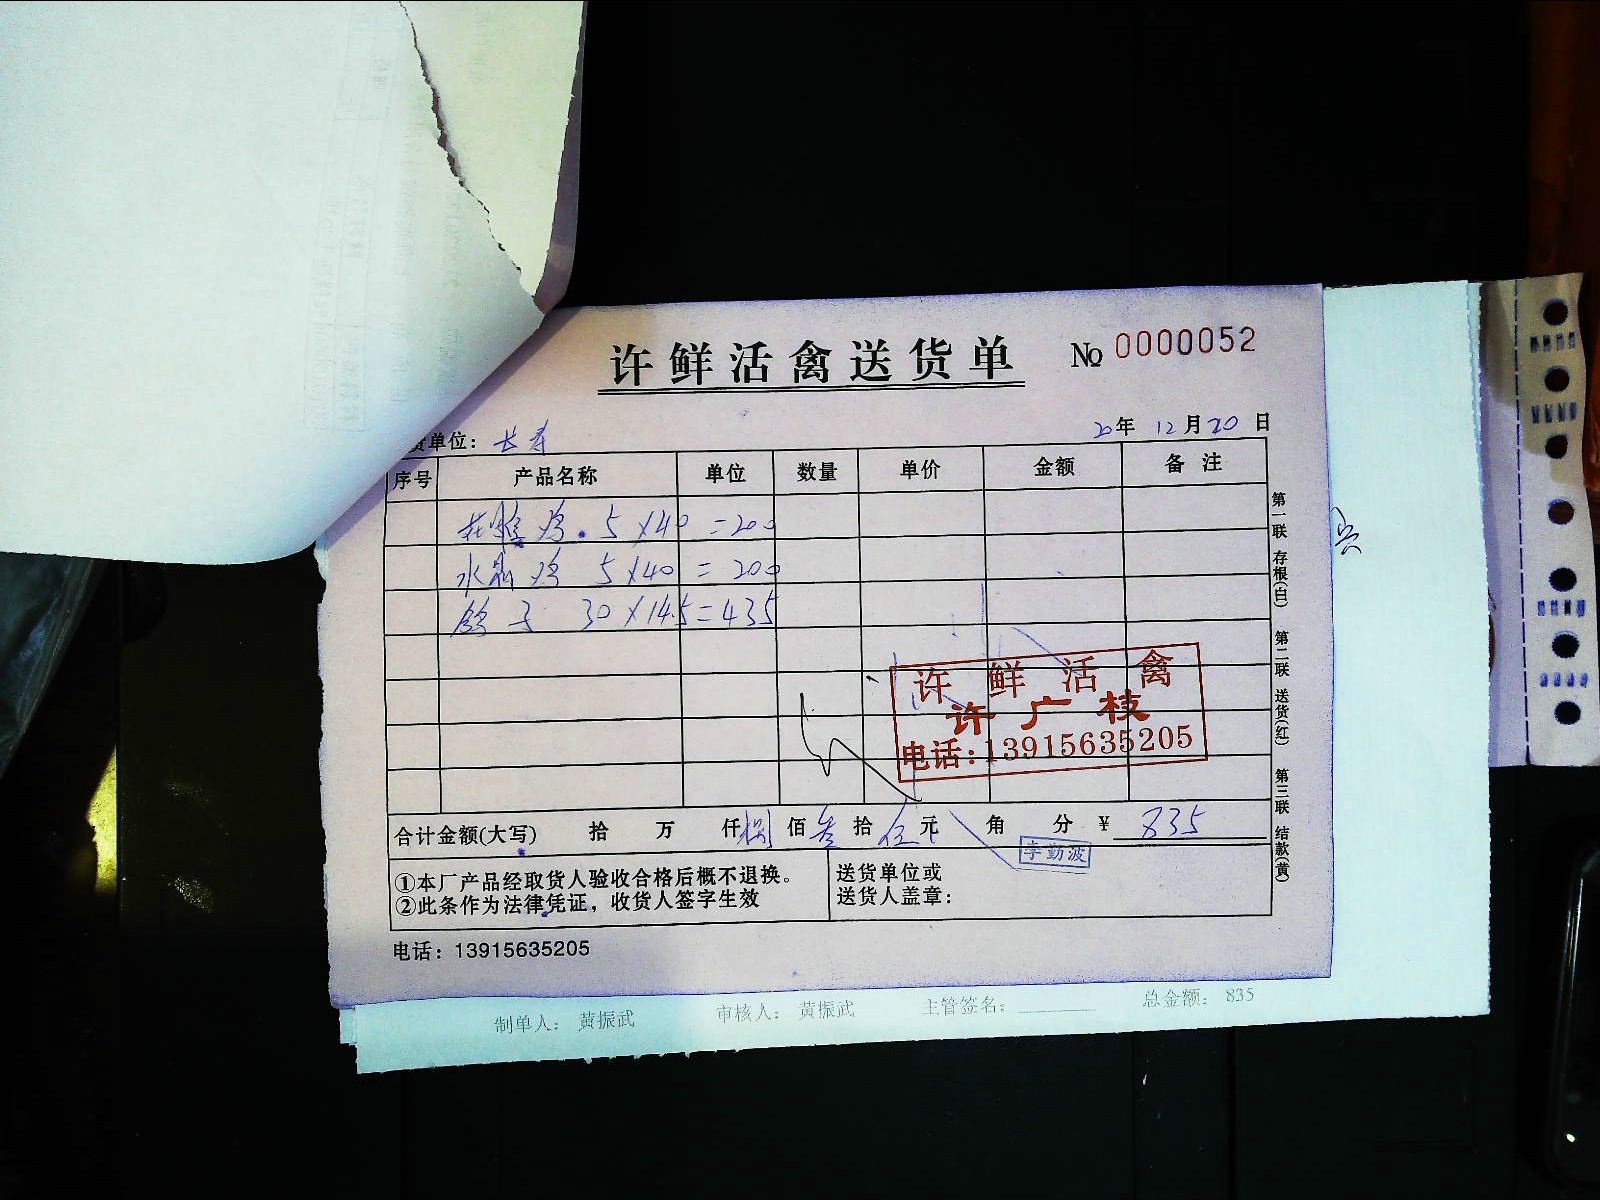 许鲜活禽送货单 № 0000052
货单位：长寿 20年12月20日
序号 产品名称 单位 数量 单价 金额 备注
鸡 5×40=200
水晶鸡 5×40=200
鸽子 30×14.5=435
第一联 存根(白) 第二联 送货(红) 第三联 结款(黄)
许鲜活禽
许广枝
电话:13915635205
合计金额(大写) 拾 万 仟 捌佰叁拾伍元 角 分 ¥ 835
李勤波
①本厂产品经取货人验收合格后概不退换。
②此条作为法律凭证，收货人签字生效
送货单位或
送货人盖章：
电话：13915635205
制单人： 黄振武 审核人： 黄振武 主管签名：________ 总金额： 835